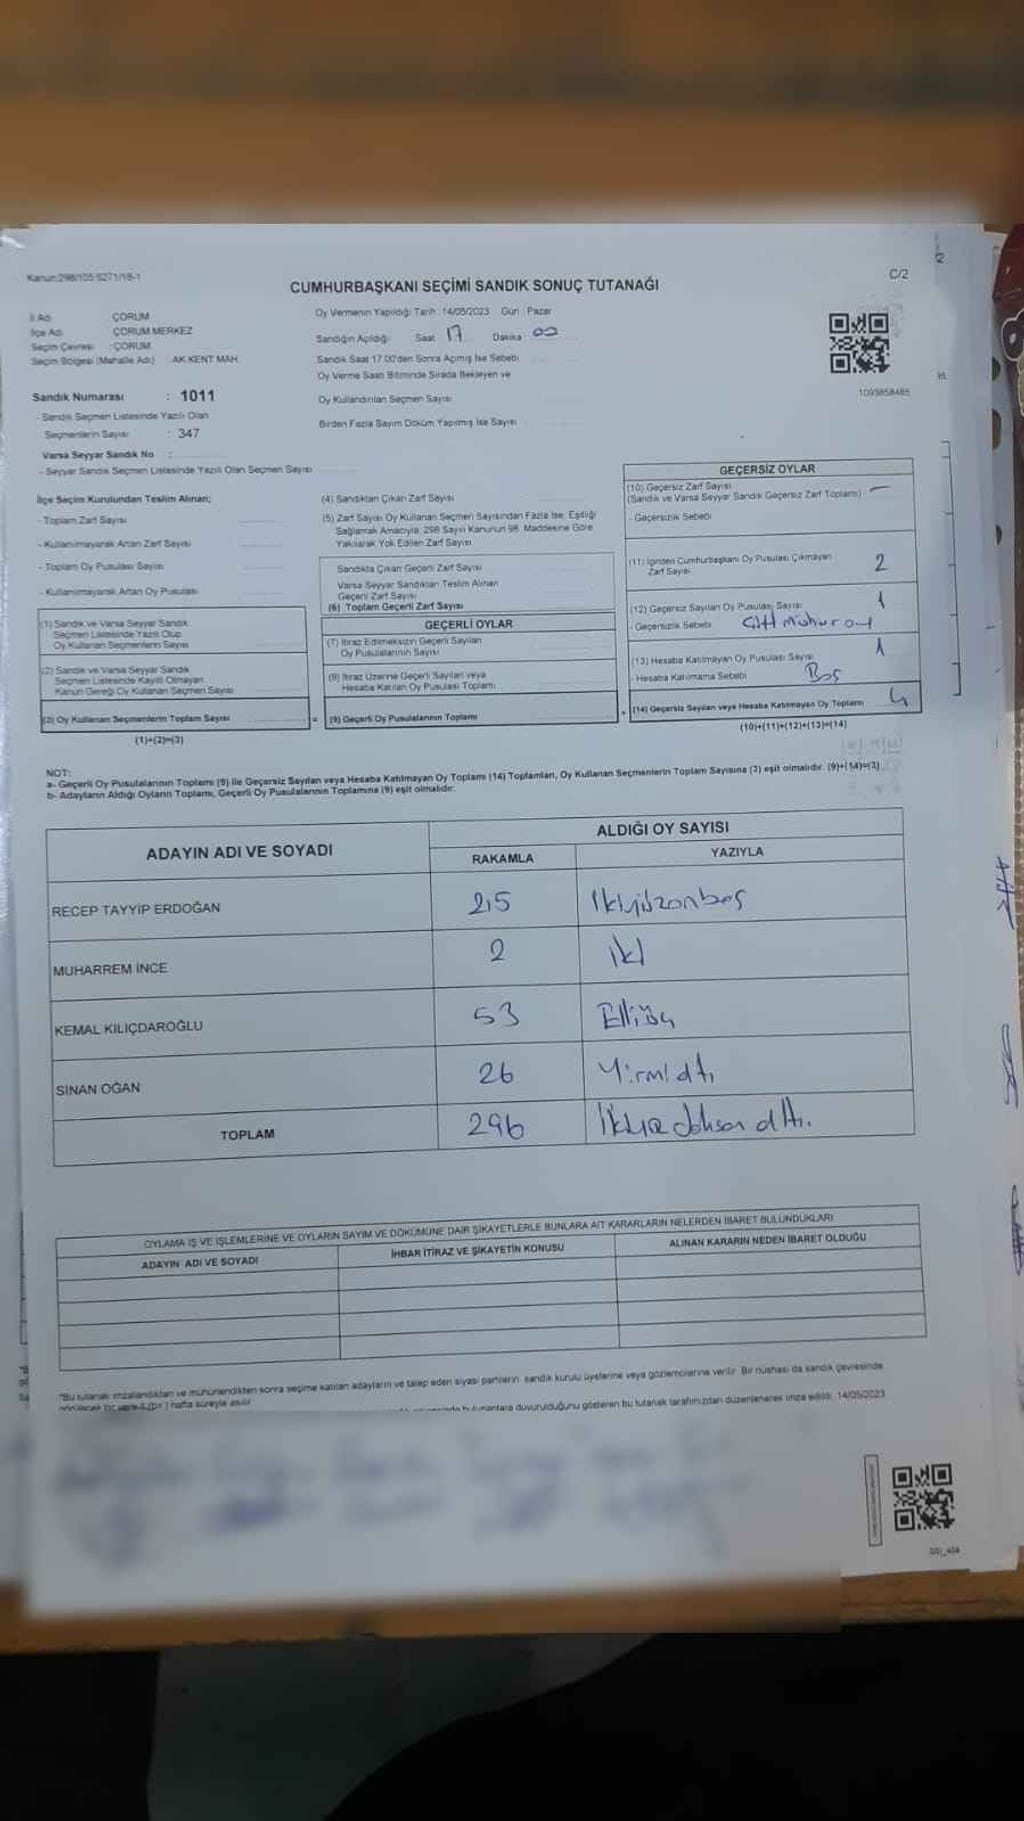 Kanun:298/105 6271/18-1
C/2
CUMHURBAŞKANI SEÇİMİ SANDIK SONUÇ TUTANAĞI
İl Adı ÇORUM
İlçe Adı ÇORUM MERKEZ
Seçim Çevresi : ÇORUM
Seçim Bölgesi (Mahalle Adı) AK KENT MAH.
Oy Vermenin Yapıldığı Tarih :14/05/2023 Gün : Pazar
Sandığın Açıldığı Saat 17 Dakika 00
Sandık Saat 17.00'den Sonra Açılmış İse Sebebi
Oy Verme Saati Bitiminde Sırada Bekleyen ve
Oy Kullandırılan Seçmen Sayısı
Birden Fazla Sayım Döküm Yapılmış İse Sayısı
1093858485
Sandık Numarası : 1011
- Sandık Seçmen Listesinde Yazılı Olan
Seçmenlerin Sayısı : 347
Varsa Seyyar Sandık No :
- Seyyar Sandık Seçmen Listesinde Yazılı Olan Seçmen Sayısı
İlçe Seçim Kurulundan Teslim Alınan;
- Toplam Zarf Sayısı
- Kullanılmayarak Artan Zarf Sayısı
- Toplam Oy Pusulası Sayısı
- Kullanılmayarak Artan Oy Pusulası
(1) Sandık ve Varsa Seyyar Sandık
Seçmen Listesinde Yazılı Olup
Oy Kullanan Seçmenlerin Sayısı
(2) Sandık ve Varsa Seyyar Sandık
Seçmen Listesinde Kayıtlı Olmayan
Kanun Gereği Oy Kullanan Seçmen Sayısı
(3) Oy Kullanan Seçmenlerin Toplam Sayısı
(1)+(2)=(3)
(4) Sandıktan Çıkan Zarf Sayısı
(5) Zarf Sayısı Oy Kullanan Seçmen Sayısından Fazla İse, Eşitliği
Sağlamak Amacıyla, 298 Sayılı Kanunun 98. Maddesine Göre
Yakılarak Yok Edilen Zarf Sayısı
Sandıkta Çıkan Geçerli Zarf Sayısı
Varsa Seyyar Sandıktan Teslim Alınan
Geçerli Zarf Sayısı
(6) Toplam Geçerli Zarf Sayısı
GEÇERLİ OYLAR
(7) İtiraz Edilmeksizin Geçerli Sayılan
Oy Pusulalarının Sayısı
(8) İtiraz Üzerine Geçerli Sayılan veya
Hesaba Katılan Oy Pusulası Toplamı
= (9) Geçerli Oy Pusulalarının Toplamı +
GEÇERSİZ OYLAR
(10) Geçersiz Zarf Sayısı
(Sandık ve Varsa Seyyar Sandık Geçersiz Zarf Toplamı) —
- Geçersizlik Sebebi
(11) İçinden Cumhurbaşkanı Oy Pusulası Çıkmayan
Zarf Sayısı 2
(12) Geçersiz Sayılan Oy Pusulası Sayısı 1
- Geçersizlik Sebebi
(13) Hesaba Katılmayan Oy Pusulası Sayısı 1
- Hesaba Katılmama Sebebi Boş
(14) Geçersiz Sayılan veya Hesaba Katılmayan Oy Toplamı 4
(10)+(11)+(12)+(13)=(14)
NOT:
a- Geçerli Oy Pusulalarının Toplamı (9) ile Geçersiz Sayılan veya Hesaba Katılmayan Oy Toplamı (14) Toplamları, Oy Kullanan Seçmenlerin Toplam Sayısına (3) eşit olmalıdır. (9)+(14)=(3)
b- Adayların Aldığı Oyların Toplamı, Geçerli Oy Pusulalarının Toplamına (9) eşit olmalıdır.
ADAYIN ADI VE SOYADI
ALDIĞI OY SAYISI
RAKAMLA YAZIYLA
RECEP TAYYİP ERDOĞAN 215 İkiyüzonbeş
MUHARREM İNCE 2 iki
KEMAL KILIÇDAROĞLU 53 Elliüç
SİNAN OĞAN 26 Yirmialtı
TOPLAM 296 İkiyüzdoksan altı.
OYLAMA İŞ VE İŞLEMLERİNE VE OYLARIN SAYIM VE DÖKÜMÜNE DAİR ŞİKAYETLERLE BUNLARA AİT KARARLARIN NELERDEN İBARET BULUNDUKLARI
ADAYIN ADI VE SOYADI İHBAR İTİRAZ VE ŞİKAYETİN KONUSU ALINAN KARARIN NEDEN İBARET OLDUĞU
*Bu tutanak imzalandıktan ve mühürlendikten sonra seçime katılan adayların ve talep eden siyasi partilerin sandık kurulu üyelerine veya gözlemcilerine verilir. Bir nüshası da sandık çevresinde
hafta süreyle asılır.
bulunanlara duyurulduğunu gösteren bu tutanak tarafımızdan düzenlenerek imza edildi. 14/05/2023